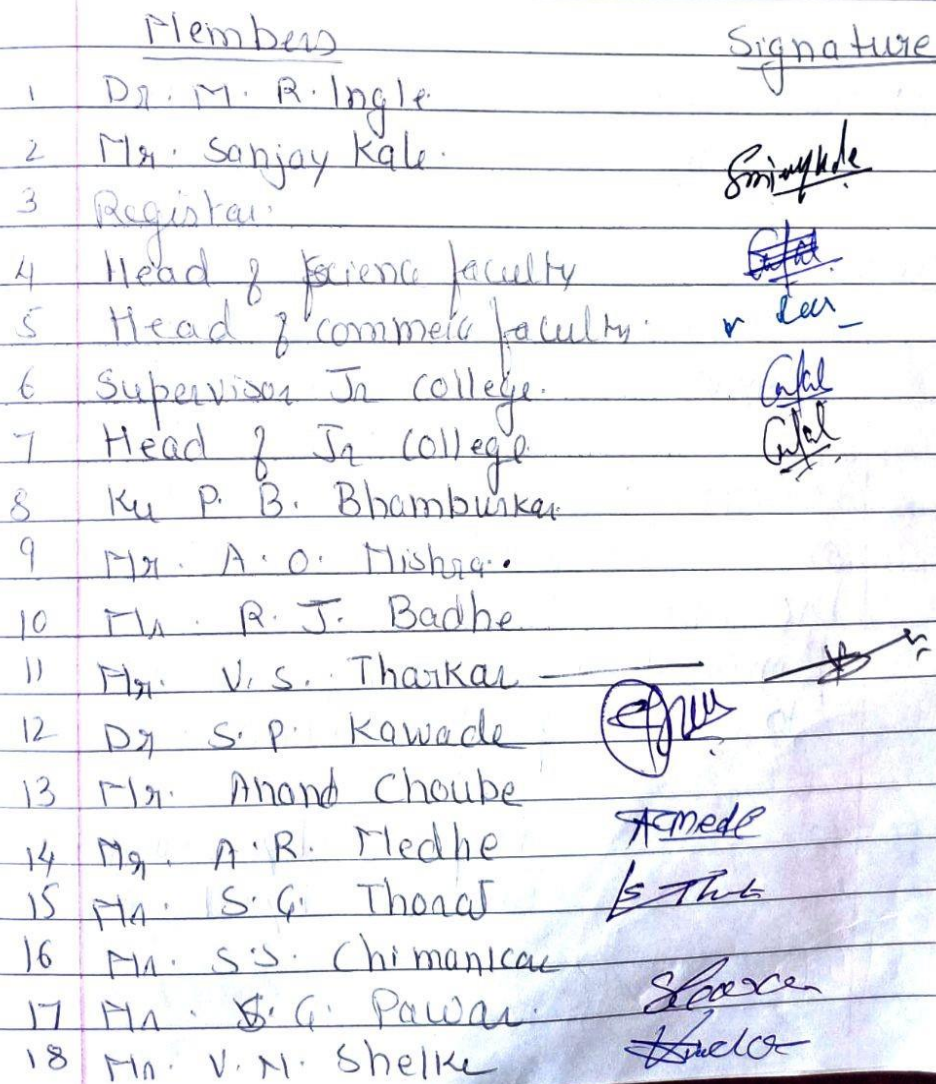 Members Signature
1 Dr. M. R. Ingle
2 Mr. Sanjay Kale.
3 Registar.
4 Head of science faculty
5 Head of commerc faculty.
6 Supervisor Jr college.
7 Head of Jr College
8 Ku P. B. Bhamburkar
9 Mr. A. O. Mishra.
10 Mr. R. J. Badhe
11 Mr. V. S. Tharkar
12 Dr S. P. Kawade
13 Mr. Anand Choube
14 Mr. A. R. Medhe
15 Mr. S. G. Thorat
16 Mr. S.S. Chimankar
17 Mr. S. G. Pawar.
18 Mr. V. M. Shelke